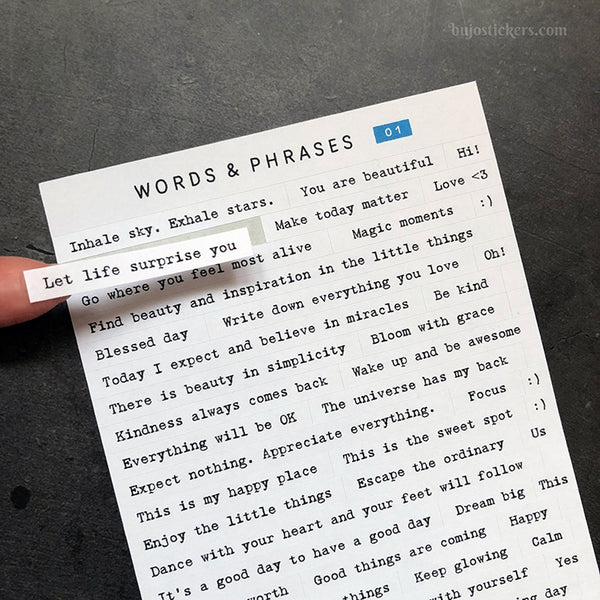 bujostickers.com
WORDS & PHRASES 01
Inhale sky. Exhale stars. You are beautiful Hi!
Let life surprise you Make today matter Love <3
Go where you feel most alive Magic moments :)
Find beauty and inspiration in the little things
Blessed day Write down everything you love Oh!
Today I expect and believe in miracles Be kind
There is beauty in simplicity Bloom with grace
Kindness always comes back Wake up and be awesome
Everything will be OK The universe has my back
Expect nothing. Appreciate everything. Focus :)
This is my happy place This is the sweet spot :)
Enjoy the little things Escape the ordinary Us
Dance with your heart and your feet will follow
It's a good day to have a good day Dream big This
worth Good things are coming Happy
things Keep glowing Calm
with yourself Yes
day